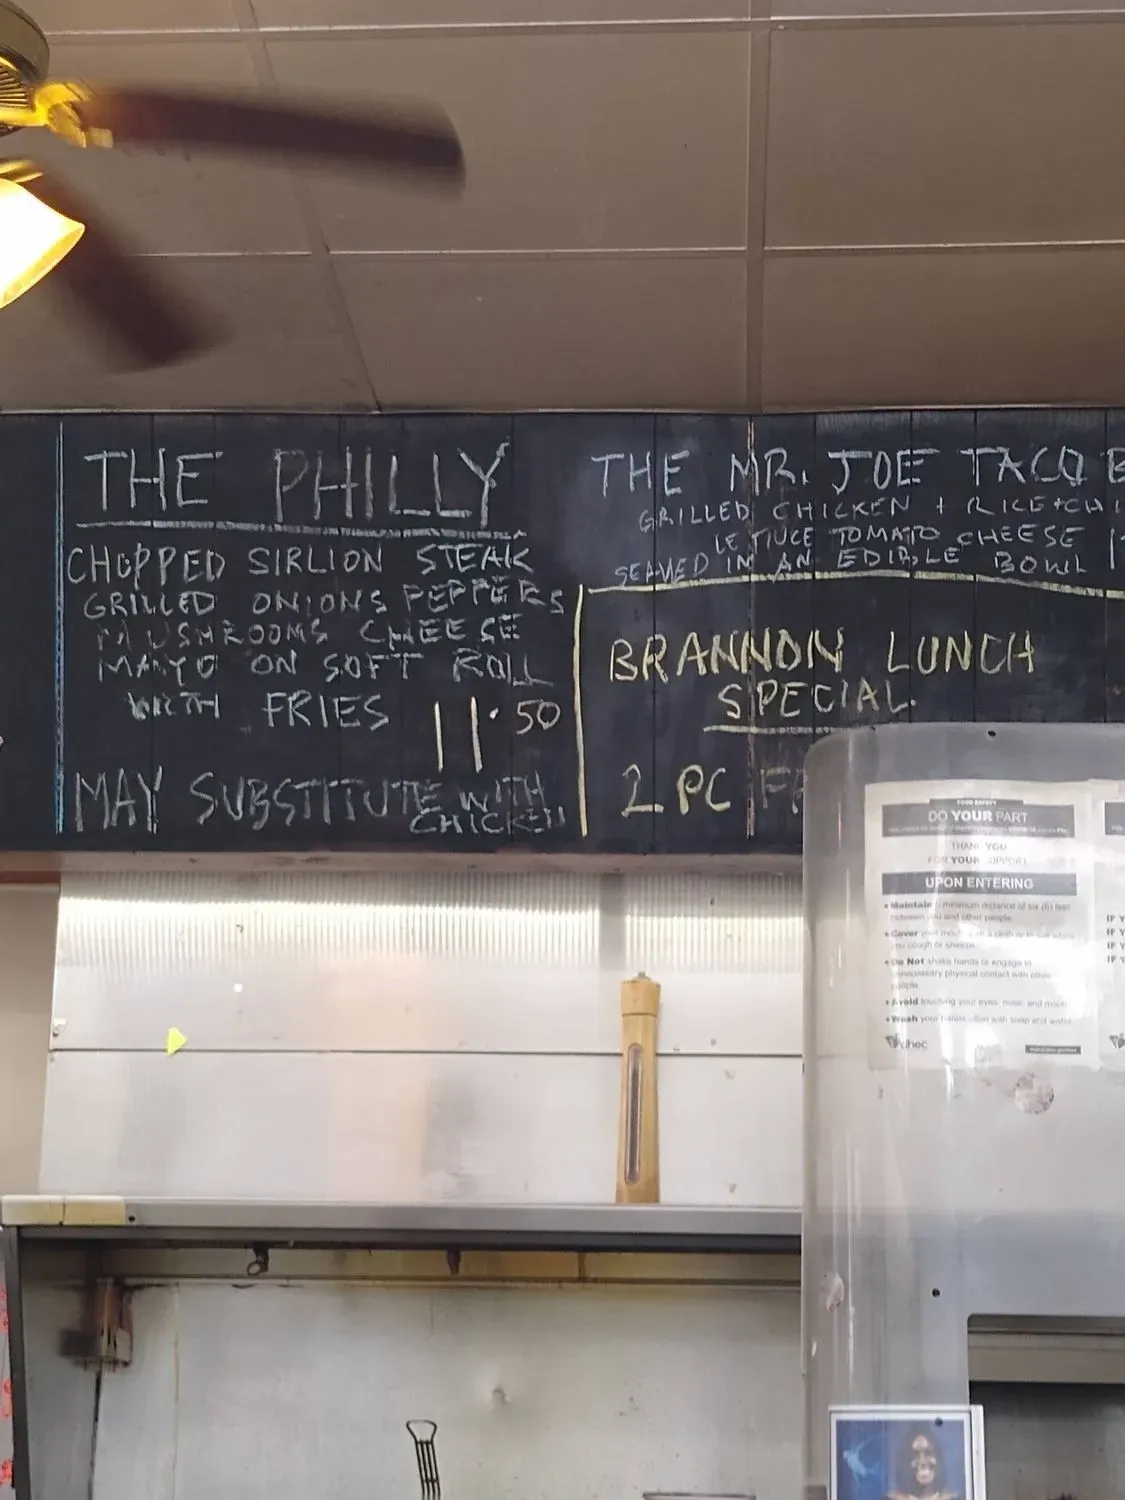 THE PHILLY
CHOPPED SIRLION STEAK
GRILLED ONIONS PEPPERS
MUSHROOMS CHEESE
MAYO ON SOFT ROLL
WITH FRIES 11.50
MAY SUBSTITUTE WITH
CHICKEN
THE MR. JOE TACO B
GRILLED CHICKEN + RICE + CHI
LETTUCE TOMATO CHEESE
SEAVED IN AN EDIBLE BOWL
BRANNON LUNCH
SPECIAL.
2 PC
FOOD SAFETY
DO YOUR PART
THANK YOU
FOR YOUR SUPPORT
UPON ENTERING
• Maintain minimum distance of six (6) feet
between you and other people.
• Cover your mouth with a cloth or
you cough or sneeze.
• Do Not shake hands or engage in
unnecessary physical contact with other
people.
• Avoid touching your eyes, nose, and mouth.
• Wash your hands often with soap and water.
dhec
IF Y
IF Y
IF Y
IF Y